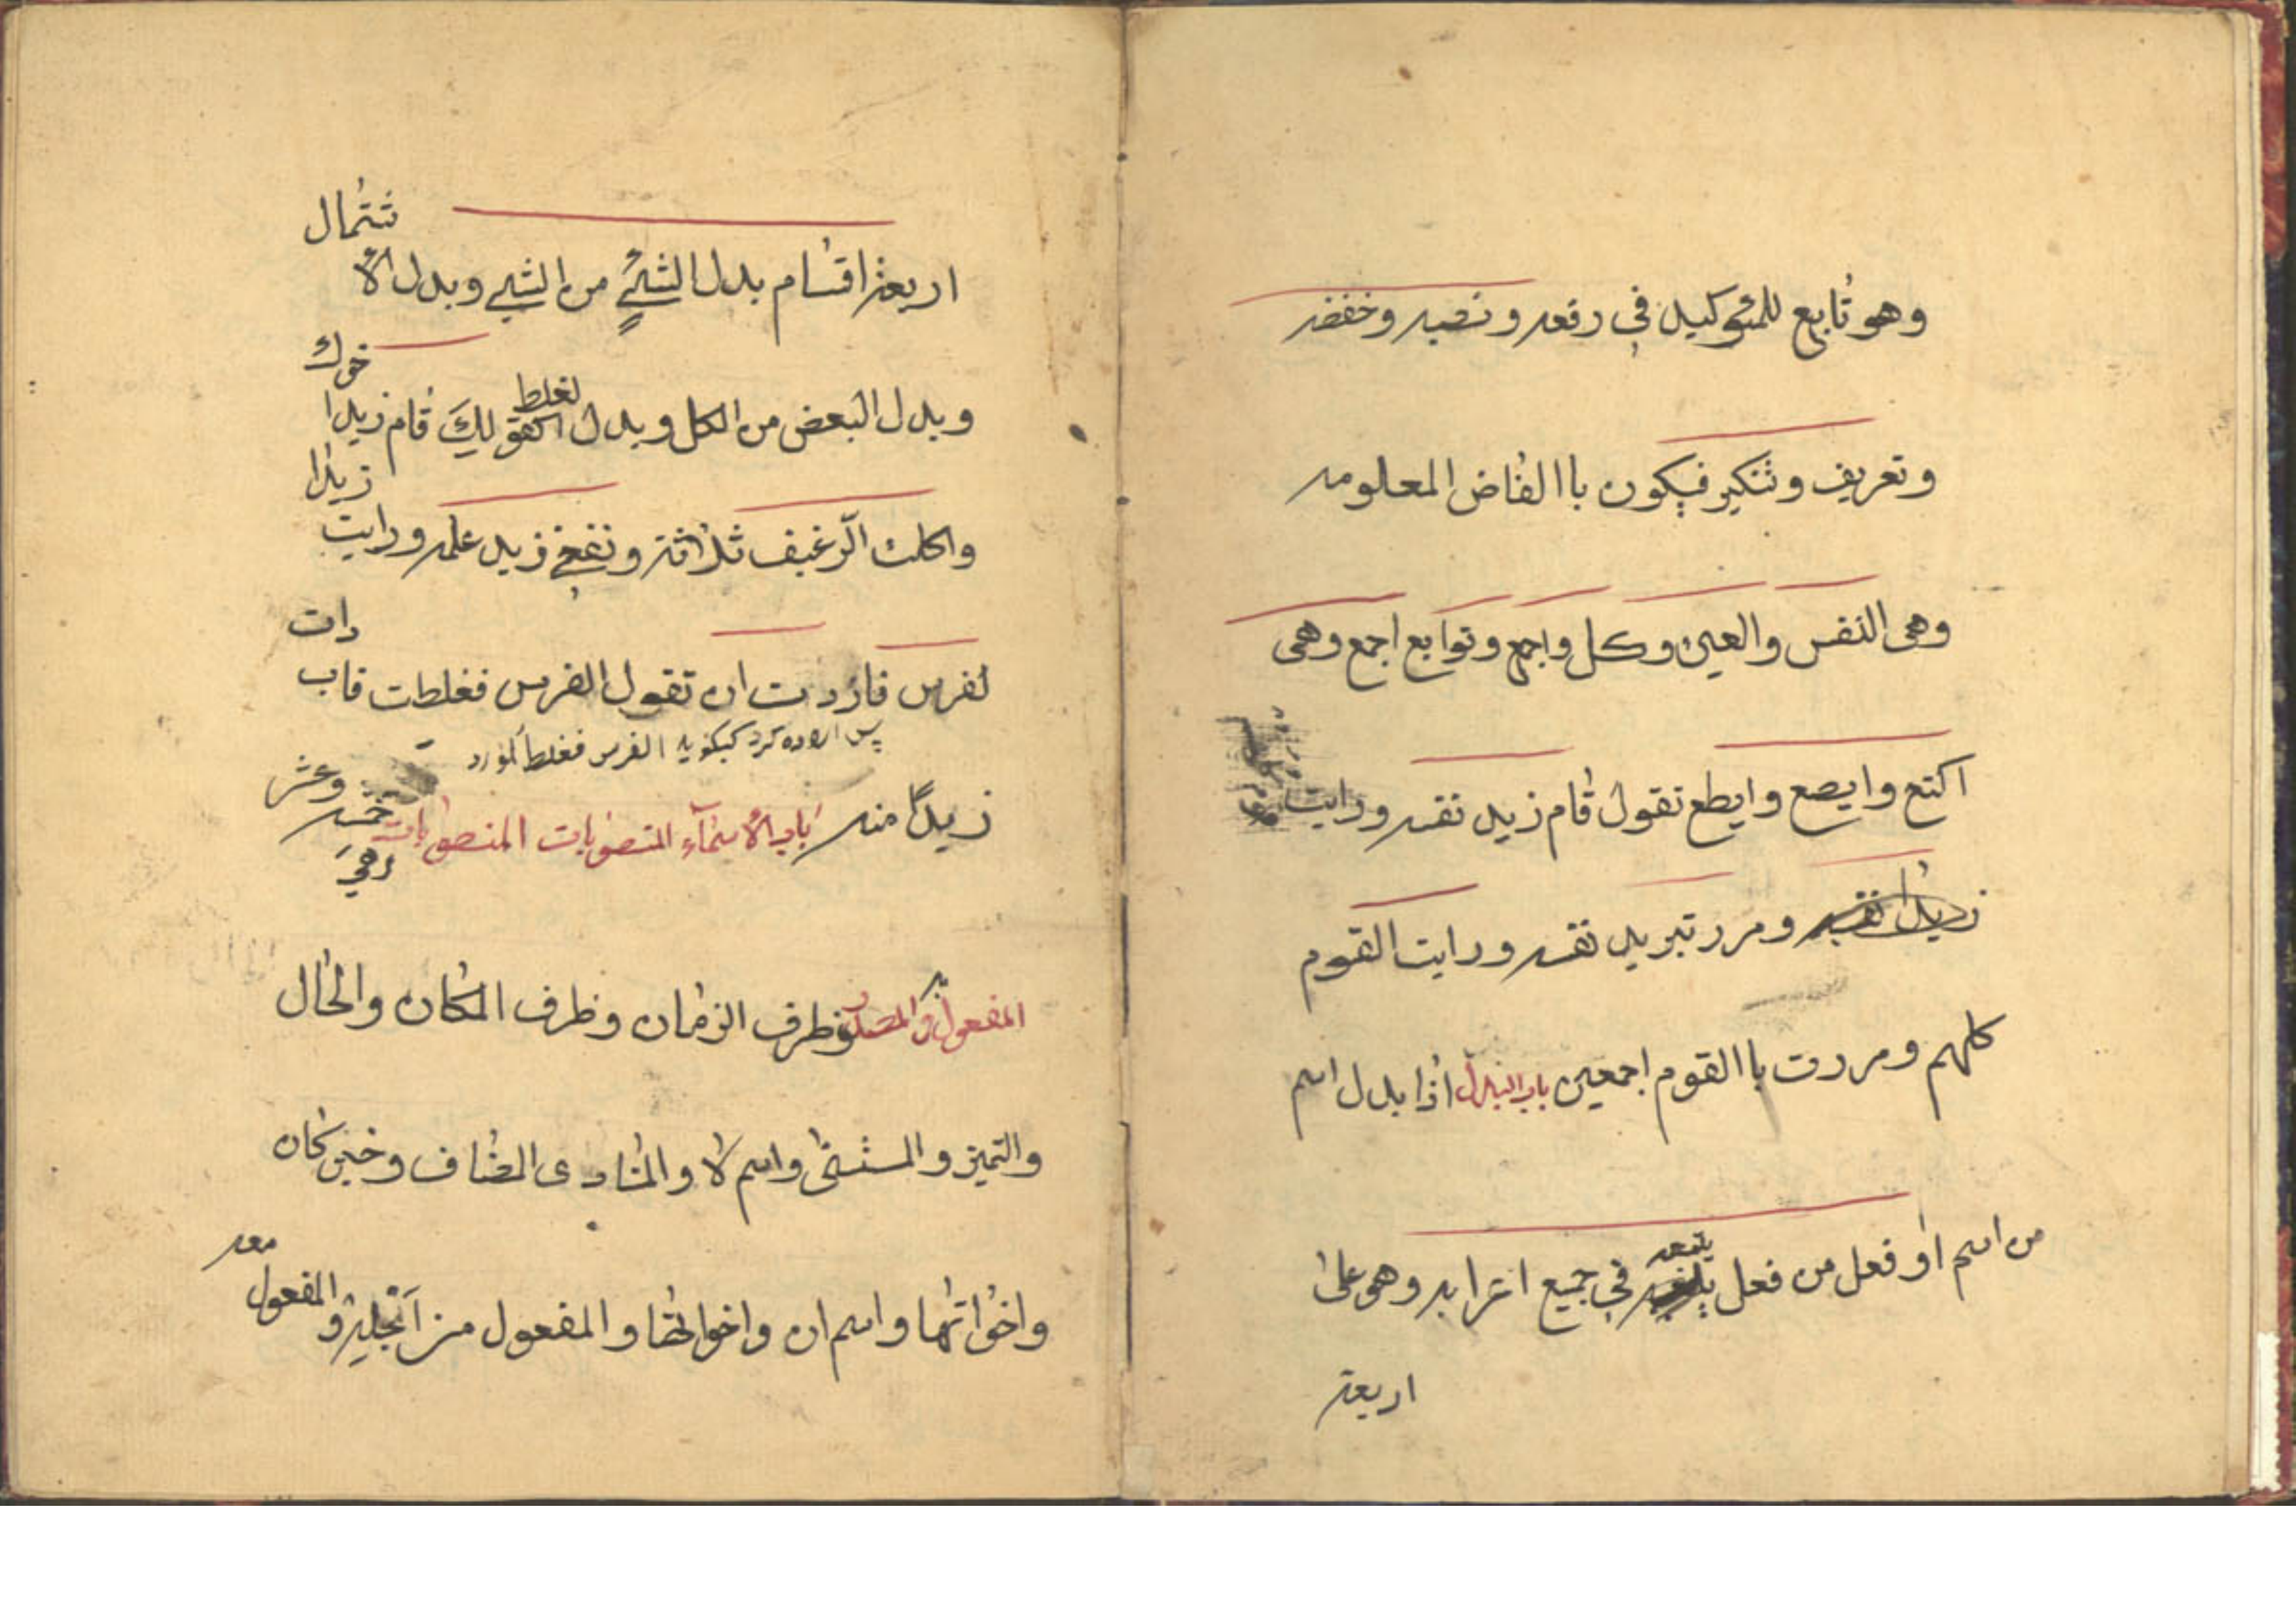 وهو تابع للمئوكيد في رفعه ونصبه وخفضه
وتعريف وتنكير فيكون باالفاض المعلومه
وهى النفس والعين وكل واجمع وتوابع اجمع وهى
اكتع وايصع وايطع تقول قام زيد نفسه ورايت
زيدا نفسه ومررتبزيد نفسه ورايت القوم
كلهم ومررت باالقوم اجمعين باب البدل اذا بدل اسم
من اسم او فعل من فعل يتبعه في جميع اعرابه وهى على
اربعة
اربعة اقسام بدل الشئ من الشئ وبدل الا
شتمال
وبدل البعض من الكل وبدل لغلط كقولك قام زيد ا
خوك
واكلت الرغيف ثلاثة ونفعنى زيد علمه ورايت
زيدا
لفرس فاردت ان تقول الفرس فغلطت فاب
دات
پس اراده كرد كبكويه الفرس فغلط
زيدا منه باب الاسماء المنصوبات المنصوبات خمسه وعشر
وهى
المفعول به والمصدر وظرف الزمان وظرف المكان والحال
والتميز والمستثنى واسم لا والمنادى المضاف وخبر كان
واخواتها واسم ان واخواتها والمفعول من اجله والمفعول
معه